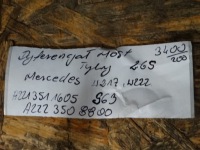 Dyferencjał Most 3402
Tylny 265 200
Mercedes W217, W222
4221351.1605 S63
A222 350 8800